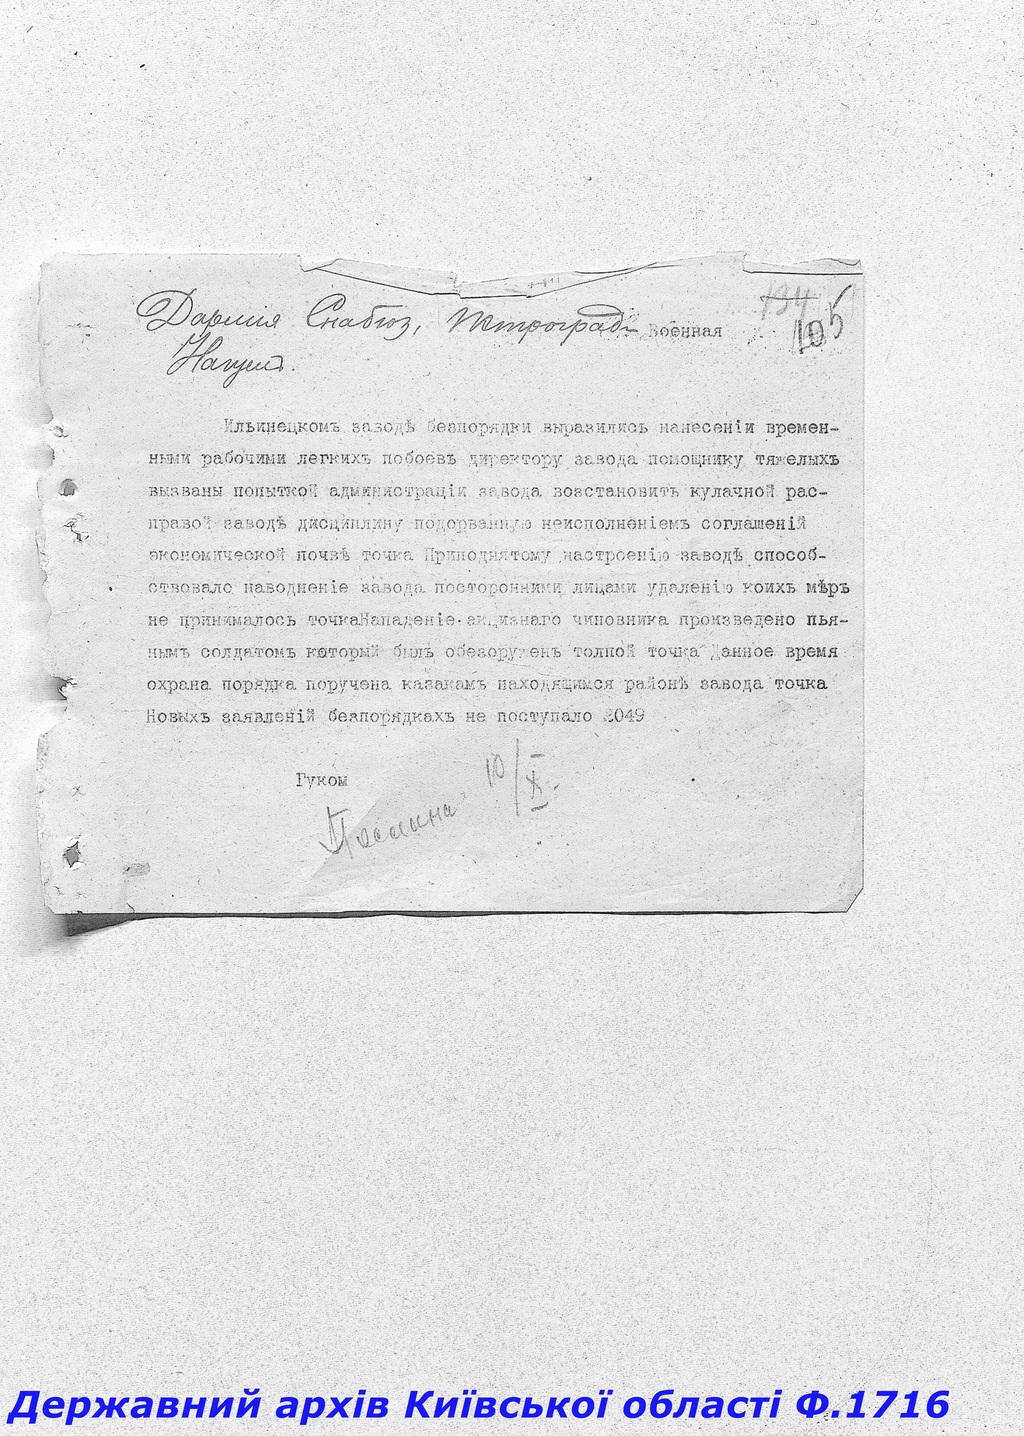 134
105
Снабюз, Петроградъ Военная
Ильинецкомъ заводѣ безпорядки выразились нанесеніи времен-
ными рабочими легкихъ побоевъ директору завода помощнику тяжелыхъ
вызваны попыткой администраціи завода возстановить кулачной рас-
правой заводѣ дисциплину подорванную неисполненіемъ соглашеній
экономической почвѣ точка Приподнятому настроенію заводѣ способ-
ствовало наводненіе завода посторонними лицами удаленію коихъ мѣръ
не принималось точкаНападеніе акцизнаго чиновника произведено пья-
нымъ солдатомъ который былъ обезоруженъ толпой точка Данное время
охрана порядка поручена казакамъ находящимся районѣ завода точка
Новыхъ заявленій безпорядкахъ не поступало 2049
Гуком
10/X.
Державний архів Київської області Ф.1716